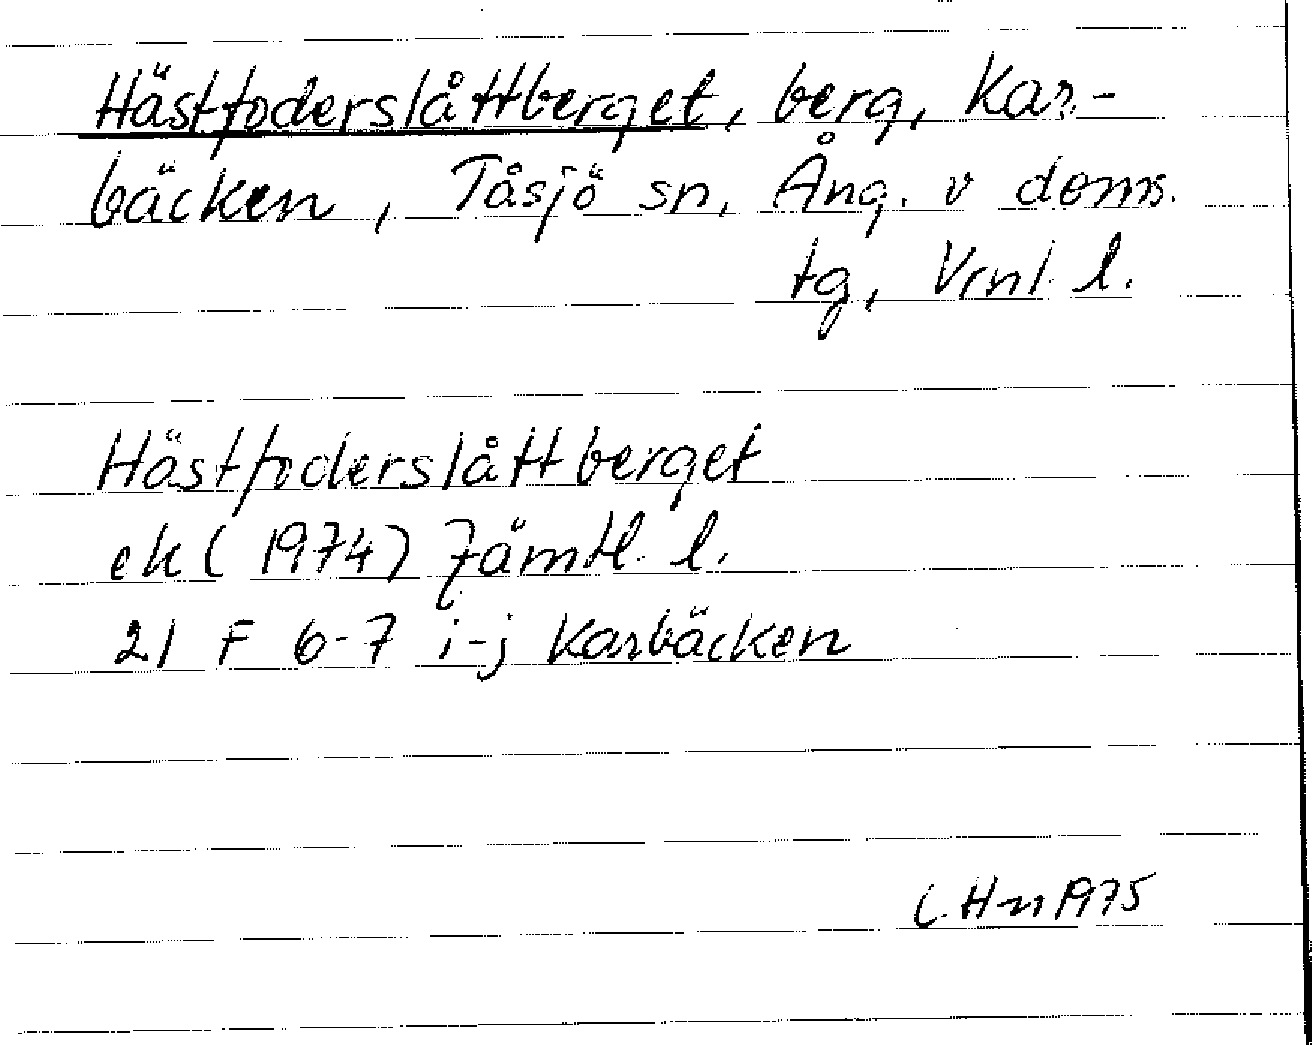 Hästfoderslåttberget, berg, Kar-
bäcken, Tåsjö sn, Ång. v doms.
tg, Vrnl. l.
Hästfoderslåttberget
ek (1974) Jämtl. l.
21 F 6-7 i-j Karbäcken
C. H-n 1975